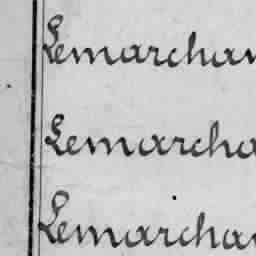 Lemarchan
Lemarcha
Lemarchan